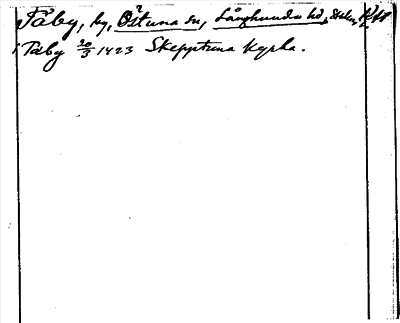 Täby, by, Östuna sn, Långhundra hd, Stklm
i Täby 20/3 1423 Skepptuna kyrka.